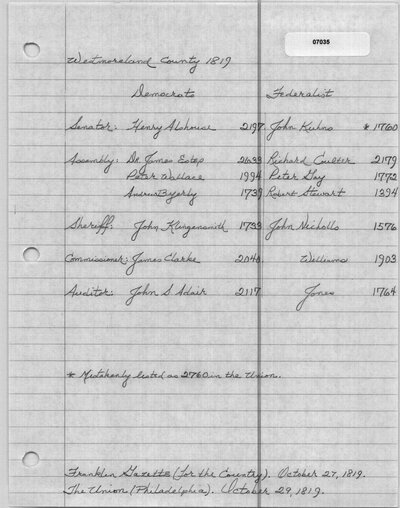 07035
Westmoreland County 1819
Democrats Federalist
Senator: Henry Alshouse 2197 John Kuhns * 1760
Assembly: Dr. James Estep 2633 Richard Coulter 2179
Peter Wallace 1994 Peter Gay 1772
Andrew Byerly 1739 Robert Stewart 1394
Sheriff: John Klingensmith 1733 John Nicholls 1576
Commissioner: James Clarke 2040 Williams 1903
Auditor: John S Adair 2117 Jones 1764
* Mistakenly listed as 2760 in the Union.
Franklin Gazette (for the Country). October 27, 1819.
The Union (Philadelphia). October 29, 1819.